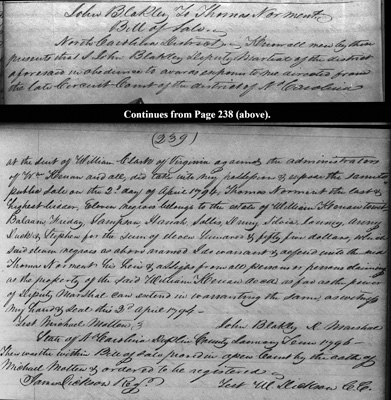 John Blakley To Thomas Norment
Bill of Sale
North Carolina District Know all men by these
presents that I John Blakley Deputy Marshal of the district
aforesaid in obedience to an to me directed from
the late Circuit Court of the district of N Carolina
Continues from Page 238 (above).
(239)
at the suit of William Clark of Virginia against the administrators
of Wm Kenan and all, did take into my possession & expose the same to
public Sale on the 2d day of April 1794, Thomas Norment the last &
highest bidder, Eleven negroes belongs to the estate of William Kenan
Balaam Friday, Sampson, Hannah,
& Stephen for the Sum of eleven hundred & fifty five dollars, which
said eleven negroes as above named I do warrant & defend unto the said
Thomas Norment his heirs & assigns from all persons or persons claiming
as the property of the said William Kenan as far as the power
of Deputy Marshal can extend in warranting the same, as witness
My hand & seal this 2d April 1794
Test Michael Molton John Blakley Marshal
State of N Carolina Duplin County January Term 1796
Then was the within Bill of Sale proved in open Court by the oath of
Michael Molton & ordered to be registered
James Dickson Test W Dickson C.C.